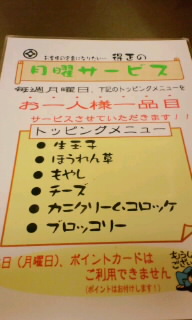 お客様に元気になりたい… 得正の
月曜サービス
毎週月曜日、下記のトッピングメニューを
お一人様一品目
サービスさせていただきます!!
トッピングメニュー
● 生玉子
● ほうれん草
● もやし
● チーズ
● カニクリーム・コロッケ
● ブロッコリー
日(月曜日)、ポイントカードは
ご利用できません
(ポイントはお付けします!)